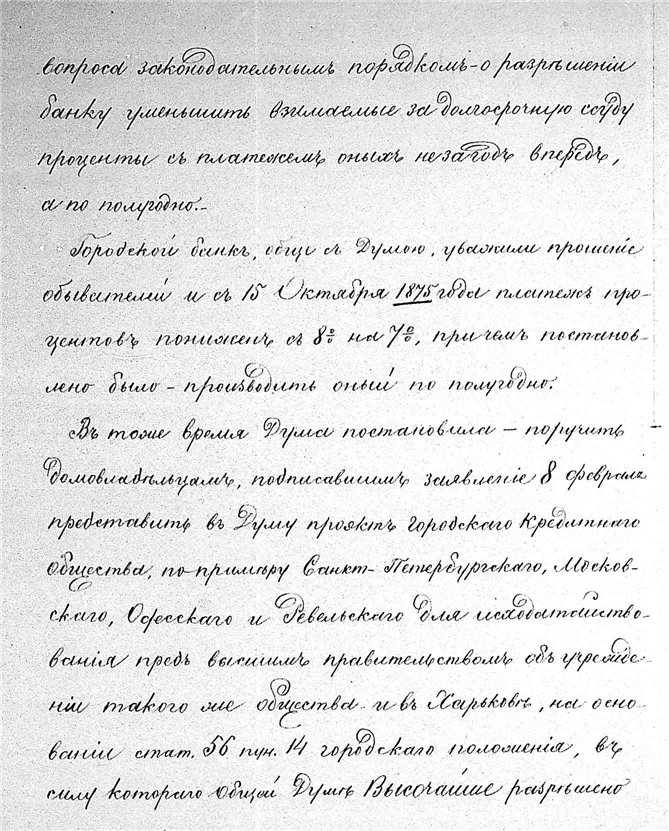 вопроса законодательнымъ порядкомъ - о разрѣшеніи
банку уменьшить взимаемые за долгосрочную ссуду
проценты съ платежемъ оныхъ не за годъ впередъ,
а по полугодно.-
Городской банкъ, обще съ Думою, уважили прошеніе
обывателей и съ 15 Октября 1875 года платежъ про-
центовъ пониженъ съ 8% на 7%, при чемъ постанов-
лено было - производить оный по полугодно.
Въ тоже время Дума постановила - поручить
домовладѣльцамъ, подписавшимъ заявленіе 8 февраля
представить въ Думу проэктъ городскаго Кредитнаго
общества, по примѣру Санкт-Петербургскаго, Москов-
скаго, Одесскаго и Ревельскаго для исходатайство-
ванія предъ высшимъ правительствомъ объ учрежде-
ніи такого же общества и въ Харьковѣ, на осно-
ваніи стат. 56 пун. 14 городскаго положенія, въ
силу котораго Общей Думѣ Высочайше разрѣшено